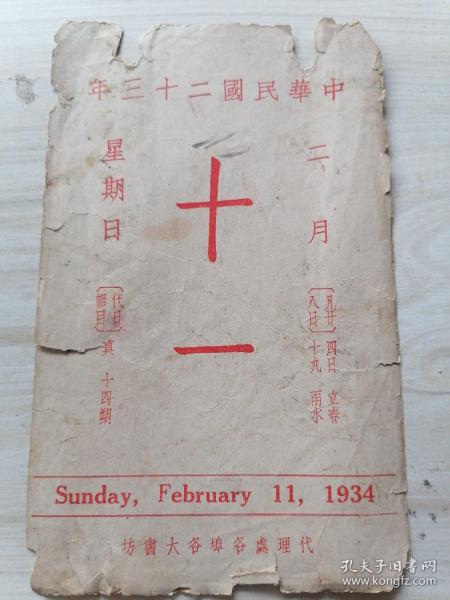 中華民國二十三年
二月
十一
星期日
凡廿八日
四日 立春
十九 雨水
代日韻目
真 十四朔
Sunday, February 11, 1934
代理處各埠各大書坊
孔夫子旧书网
www.kongfz.com